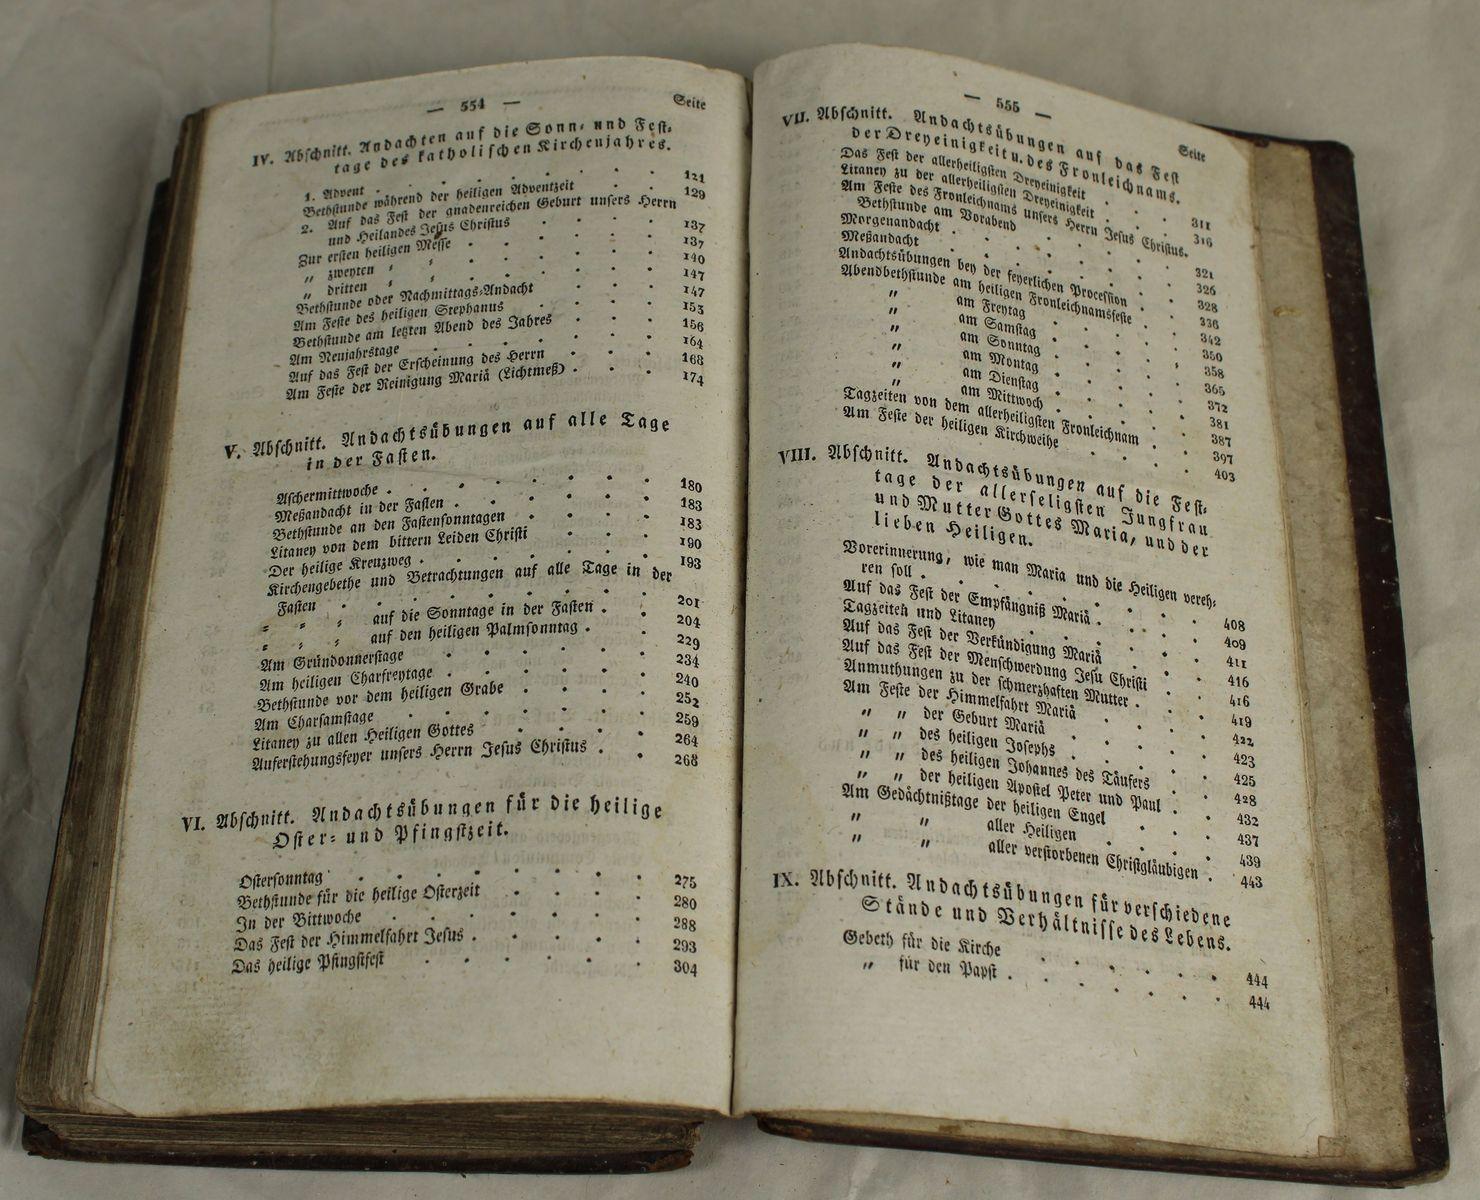 — 554 —
Seite
IV. Abschnitt. Andachten auf die Sonn- und Fest-
tage des katholischen Kirchenjahres.
1. Advent . . . . . . . . 121
Bethstunde während der heiligen Adventzeit . . 129
2. Auf das Fest der gnadenreichen Geburt unsers Herrn
und Heilandes Jesus Christus . . . . 137
Zur ersten heiligen Messe . . . . . . 137
„ zweyten „ „ . . . . . . 140
„ dritten „ „ . . . . . . 147
Bethstunde oder Nachmittags-Andacht . . . 147
Am Feste des heiligen Stephanus . . . . 153
Bethstunde am letzten Abend des Jahres . . . 156
Am Neujahrstage . . . . . . 164
Auf das Fest der Erscheinung des Herrn . . . 168
Am Feste der Reinigung Mariä (Lichtmeß) . . . 174
V. Abschnitt. Andachtsübungen auf alle Tage
in der Fasten.
Aschermittwoche . . . . . . . 180
Meßandacht in der Fasten . . . . . . 183
Bethstunde an den Fastensonntagen . . . . 183
Litaney von dem bittern Leiden Christi . . . 190
Der heilige Kreuzweg . . . . . . 193
Kirchengebethe und Betrachtungen auf alle Tage in der
Fasten . . . . . . . . 201
„ „ „ auf die Sonntage in der Fasten . . 204
„ „ „ auf den heiligen Palmsonntag . . 229
Am Gründonnerstage . . . . . . 234
Am heiligen Charfreytage . . . . . 240
Bethstunde vor dem heiligen Grabe . . . . 252
Am Charsamstage . . . . . . 259
Litaney zu allen Heiligen Gottes . . . . 264
Auferstehungsfeyer unsers Herrn Jesus Christus . . 268
VI. Abschnitt. Andachtsübungen für die heilige
Oster- und Pfingstzeit.
Ostersonntag . . . . . . . 275
Bethstunde für die heilige Osterzeit . . . . 280
In der Bittwoche . . . . . . 288
Das Fest der Himmelfahrt Jesus . . . . . 293
Das heilige Pfingstfest . . . . . . 304
— 555 —
Seite
VII. Abschnitt. Andachtsübungen auf das Fest
der Dreyeinigkeit u. des Fronleichnams.
Das Fest der allerheiligsten Dreyeinigkeit . . . 311
Litaney zu der allerheiligsten Dreyeinigkeit . . . 316
Am Feste des Fronleichnams unsers Herrn Jesus Christus.
Bethstunde am Vorabend . . . . . 321
Morgenandacht . . . . . . . 326
Meßandacht . . . . . . . 328
Andachtsübungen bey der feyerlichen Procession . . 336
Abendbethstunde am heiligen Fronleichnamsfeste . . 342
„ am Freytag . . . . . 350
„ am Samstag . . . . . 358
„ am Sonntag . . . . . 365
„ am Montag . . . . . 372
„ am Dienstag . . . . . 381
„ am Mittwoch . . . . . 387
Tagzeiten von dem allerheiligsten Fronleichnam . . 397
Am Feste der heiligen Kirchweihe . . . . 403
VIII. Abschnitt. Andachtsübungen auf die Fest-
tage der allerseligsten Jungfrau
und Mutter Gottes Maria, und der
lieben Heiligen.
Vorerinnerung, wie man Maria und die Heiligen vereh-
ren soll . . . . . . . . 408
Auf das Fest der Empfängniß Mariä . . . . 409
Tagzeiten und Litaney . . . . . . 411
Auf das Fest der Verkündigung Mariä . . . 416
Auf das Fest der Menschwerdung Jesu Christi . . 416
Anmuthungen zu der schmerzhaften Mutter . . . 419
Am Feste der Himmelfahrt Mariä . . . . 422
„ „ der Geburt Mariä . . . . . 423
„ „ des heiligen Josephs . . . . . 425
„ „ des heiligen Johannes des Täufers . . 428
„ „ der heiligen Apostel Peter und Paul . . 432
Am Gedächtnißtage der heiligen Engel . . . 437
„ „ aller Heiligen . . . . 439
„ „ aller verstorbenen Christgläubigen . 443
IX. Abschnitt. Andachtsübungen für verschiedene
Stände und Verhältnisse des Lebens.
Gebeth für die Kirche . . . . . . 444
„ für den Papst . . . . . . 444